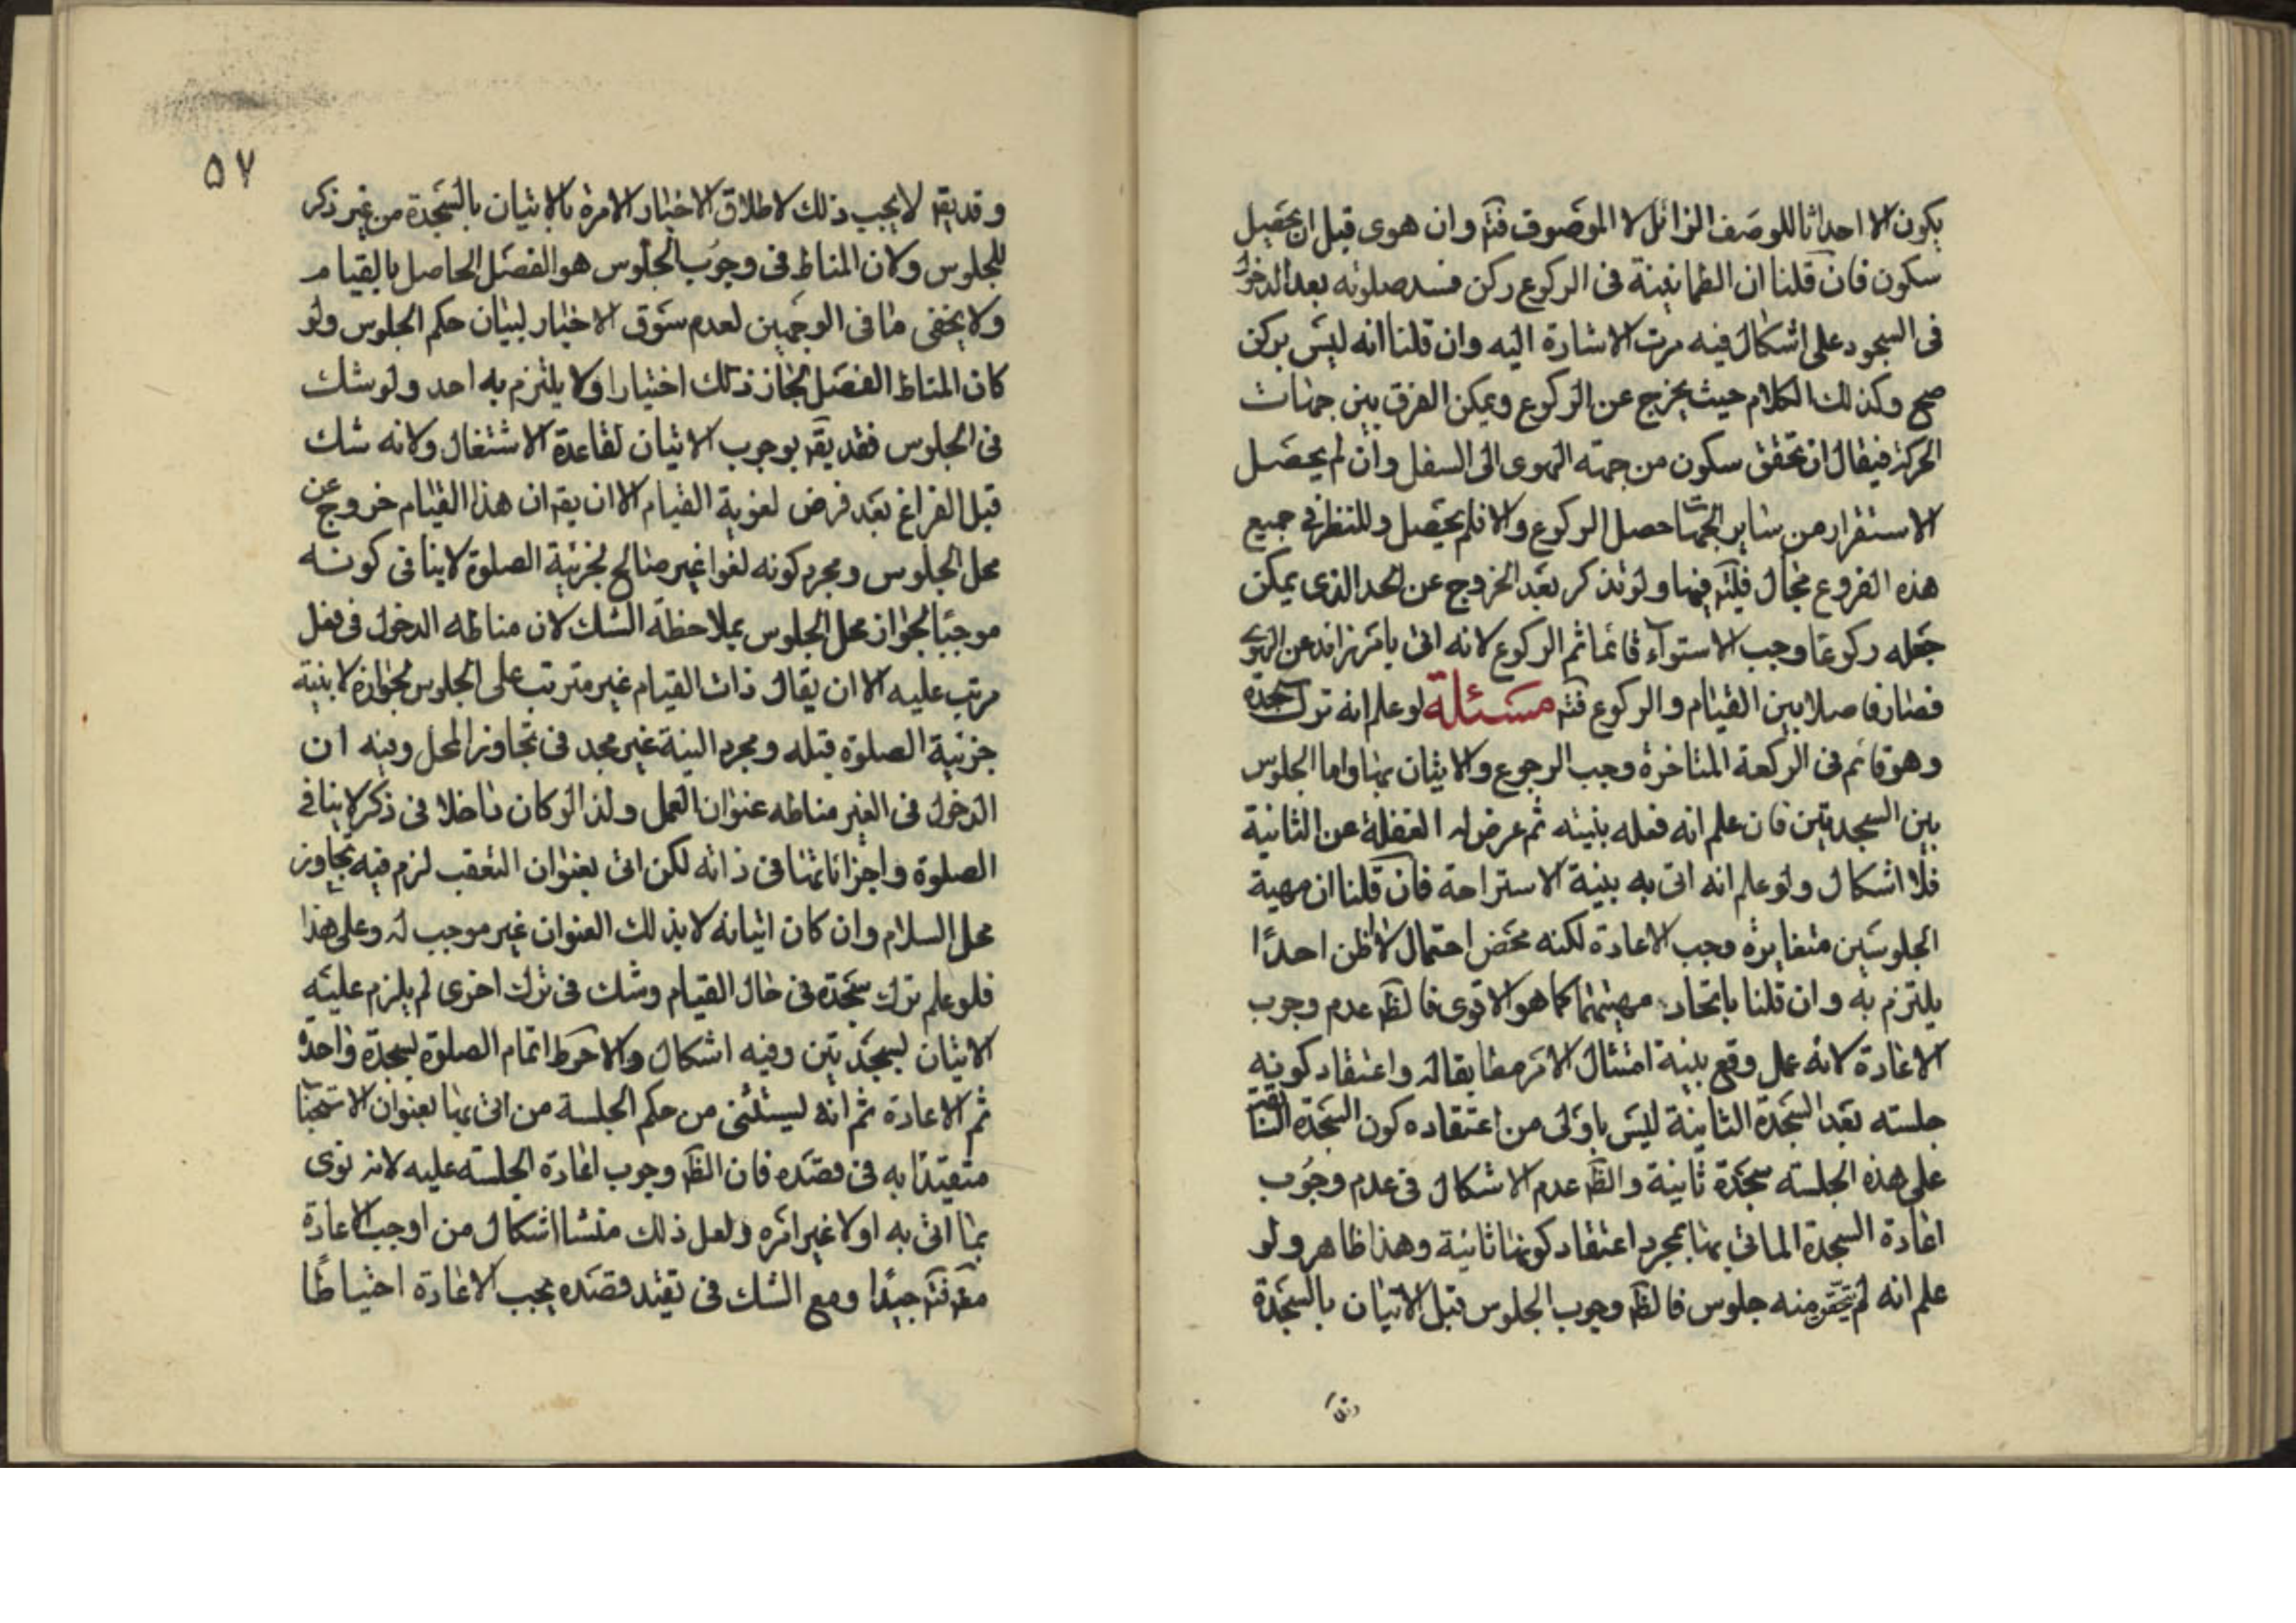 يكون الا احداثا للوصف الزائل لا الموصوف فتم وان هوى قبل ان يحصل
سكون فان قلنا ان الطمانينة فى الركوع ركن فسد صلوته بعد الدخول
فى السجود على اشكال فيه مرت الاشارة اليه وان قلنا انه ليس بركن
صح وكذلك الكلام حيث يخرج عن الركوع ويمكن الفرق بين جهات
الحركة فيقال ان تحقق سكون من جهته الهوى الى السفل وان لم يحصل
الاستقرار من ساير الجهات حصل الركوع والا فلم يحصل وللنظر فى جميع
هذه الفروع مجال فليتم فيها ولو تذكر بعد الخروج عن الحد الذى يمكن
جعله ركوعا وجب الاستوآء قائما ثم الركوع لانه اتى بامر زائد عن الهوى
فصار فاصلا بين القيام والركوع فتم مسئلة لو علم انه ترك سجدة
وهو قائم فى الركعة المتاخرة وجب الرجوع والاتيان بها واما الجلوس
بين السجدتين فان علم انه فعله بنيته ثم عرض له الغفلة عن الثانية
فلا اشكال ولو علم انه اتى به بنية الاستراحة فان قلنا ان مهية
الجلوسين متغايرة وجب الاعادة لكنه محض احتمال لا اظن احدًا
يلتزم به وان قلنا باتحاد مهيتهما كما هو الاقوى فالظ عدم وجوب
الاعادة لانه عمل وقع بنية امتثال الامر مطابقا له واعتقاد كونه
جلسته بعد السجدة الثانية ليس باولى من اعتقاده كون السجدة السابقة
على هذه الجلسته سجدة ثانية والظ عدم الاشكال فى عدم وجوب
اعادة السجدة الماتى بها بمجرد اعتقاد كونها ثانية وهذا ظاهر ولو
علم انه لم يتحقق منه جلوس فالظ وجوب الجلوس قبل الاتيان بالسجدة
وقد
٥٧
وقد يق لا يجب ذلك لاطلاق الاخبار الامرة بالاتيان بالسجدة من غير ذكر
للجلوس ولان المناط فى وجوب الجلوس هو الفصل الحاصل بالقيام
ولا يخفى ما فى الوجهين لعدم سوق الاخبار لبيان حكم الجلوس ولو
كان المناط الفصل لجاز ذلك اختيارا ولا يلتزم به احد ولو شك
فى الجلوس فقد يق بوجوب الاتيان لقاعدة الاشتغال ولانه شك
قبل الفراغ بعد فرض لغوية القيام الا ان يق ان هذا القيام خروج عن
محل الجلوس ومجرد كونه لغوا غير صالح لجزئية الصلوة لا ينافى كونه
موجبًا لجواز محل الجلوس بملاحظة الشك لان مناطه الدخول فى فعل
مرتب عليه الا ان يقال ذات القيام غير مترتب على الجلوس لجوازه لا بنية
جزئية الصلوة قبله ومجرد النية غير مجد فى تجاوز المحل وفيه ان
الدخول فى الغير مناطه عنوان العمل ولذا لو كان داخلا فى ذكر لا ينافى
الصلوة واجزائها فى ذاته لكن اتى بعنوان التعقب لزم فيه تجاوز
محل السلام وان كان اتيانه لا بذلك العنوان غير موجب له وعلى هذا
فلو علم ترك سجدة فى حال القيام وشك فى ترك اخرى لم يلزم عليه
الاتيان بسجدتين وفيه اشكال والاحوط اتمام الصلوة بسجدة واحدة
ثم الاعادة ثم انه يستثنى من حكم الجلسة من اتى بها بعنوان الاستحباب
متقيدًا به فى قصده فان الظ وجوب اعادة الجلسته عليه لانه نوى
بما اتى به اولا غير امره ولعل ذلك منشا اشكال من اوجب الاعادة
فتم جيدًا ومع الشك فى تقيد قصده يجب الاعادة احتياطًا